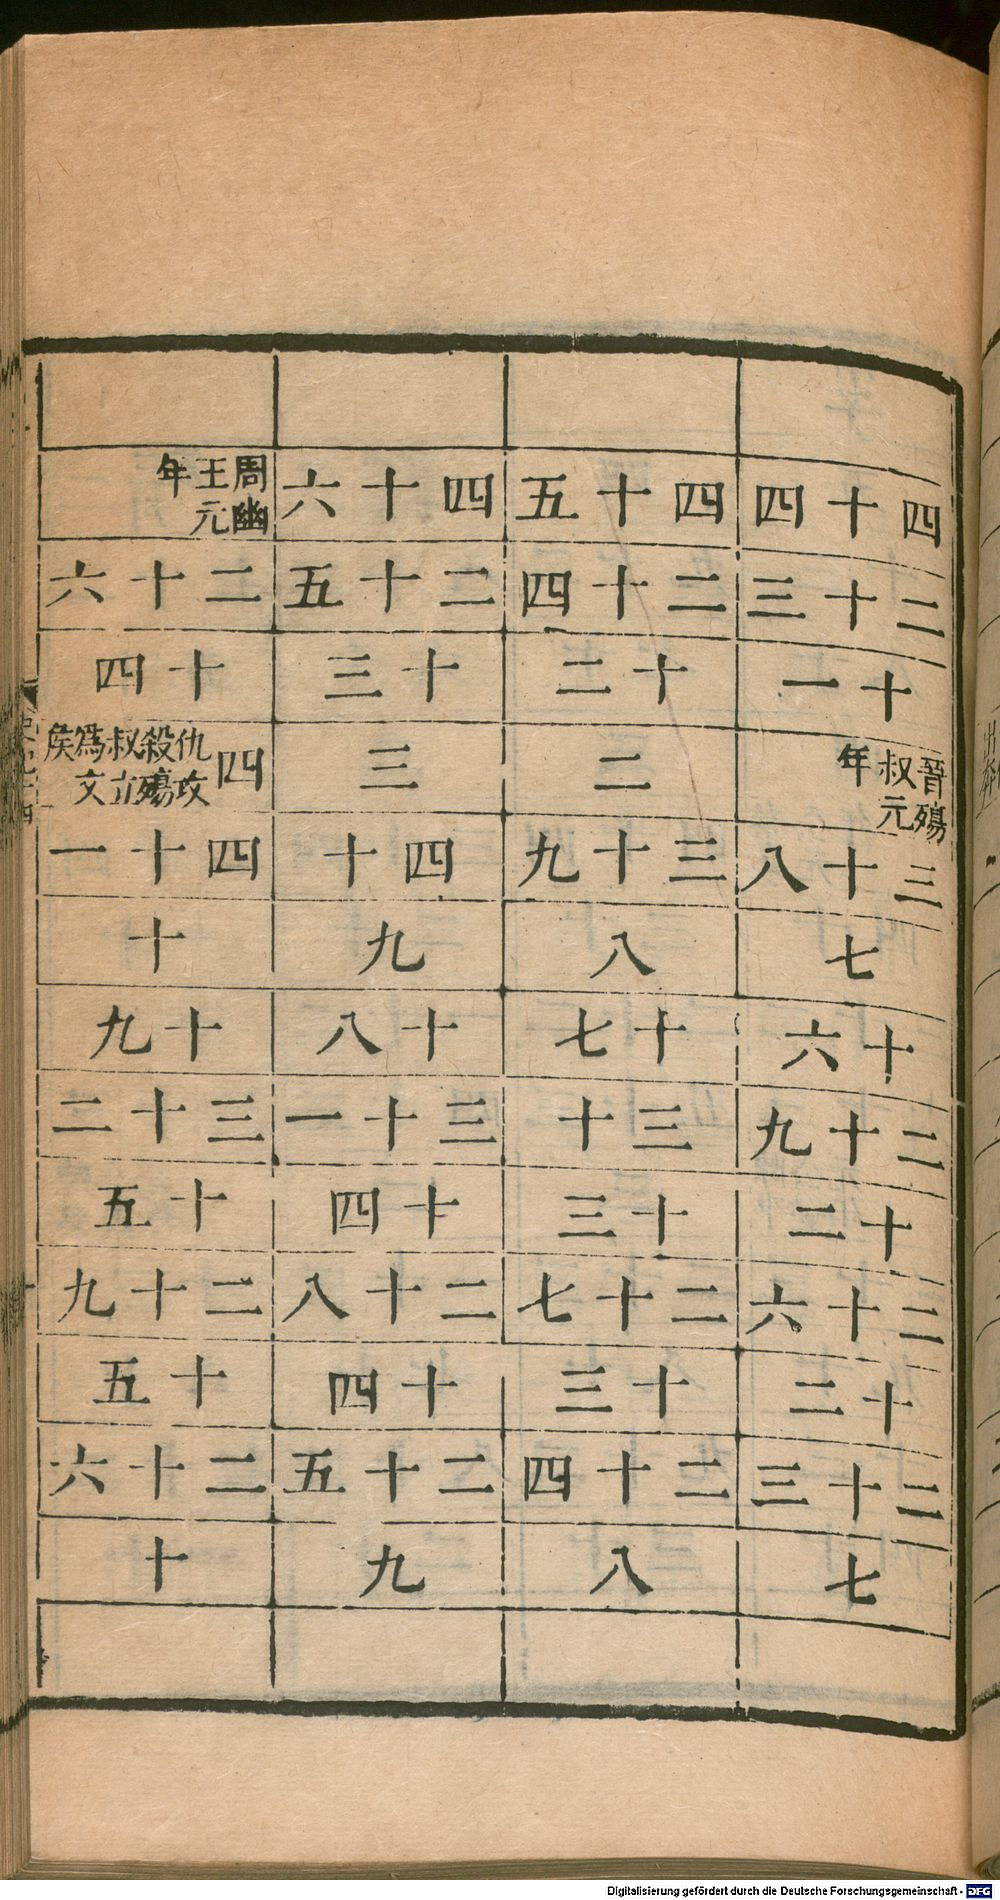 四十四
二十三
十一
晉殤叔元年
三十八
七
十六
二十九
十二
二十六
十二
二十三
七
四十五
二十四
十二
二
三十九
八
十七
三十
十三
二十七
十三
二十四
八
四十六
二十五
十三
三
四十
九
十八
三十一
十四
二十八
十四
二十五
九
周幽王元年
二十六
十四
四 仇攻殺殤叔立爲文侯
四十一
十
十九
三十二
十五
二十九
十五
二十六
十
Digitalisierung gefördert durch die Deutsche Forschungsgemeinschaft - DFG